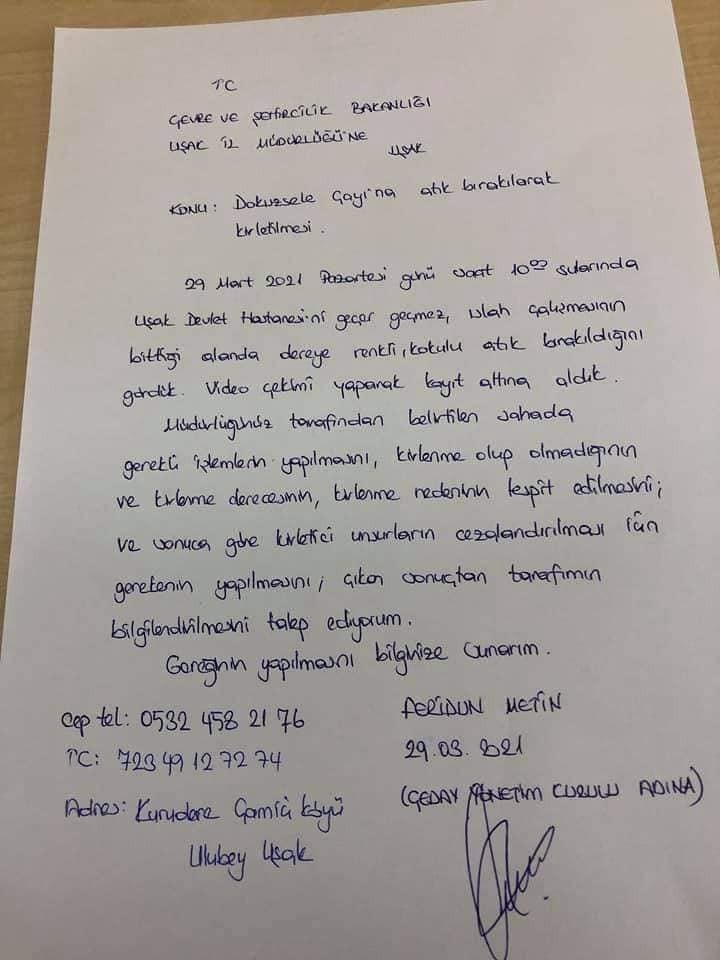 TC
ÇEVRE VE ŞEHİRCİLİK BAKANLIĞI
UŞAK İL MÜDÜRLÜĞÜ'NE
UŞAK
KONU: Dokuzsele Çayı'na atık bırakılarak
kirletilmesi.
29 Mart 2021 Pazartesi günü saat 10⁰⁰ sularında
Uşak Devlet Hastanesi'ni geçer geçmez, ıslah çalışmasının
bittiği alanda dereye renkli, kokulu atık bırakıldığını
gördük. Video çekimi yaparak kayıt altına aldık.
Müdürlüğünüz tarafından belirtilen sahada
gerekli işlemlerin yapılmasını, kirlenme olup olmadığının
ve kirlenme derecesinin, kirlenme nedeninin tespit edilmesini;
ve sonuca göre kirletici unsurların cezalandırılması için
gerekenin yapılmasını; çıkan sonuçtan tarafımın
bilgilendirilmesini talep ediyorum.
Gereğinin yapılmasını bilginize sunarım.
Cep tel: 0532 458 21 76
FERİDUN METİN
TC: 723 49 12 72 74
29.03.2021
Adres: Kurudere Çamlı Köyü
(ÇEDAY YÖNETİM KURULU ADINA)
Ulubey Uşak